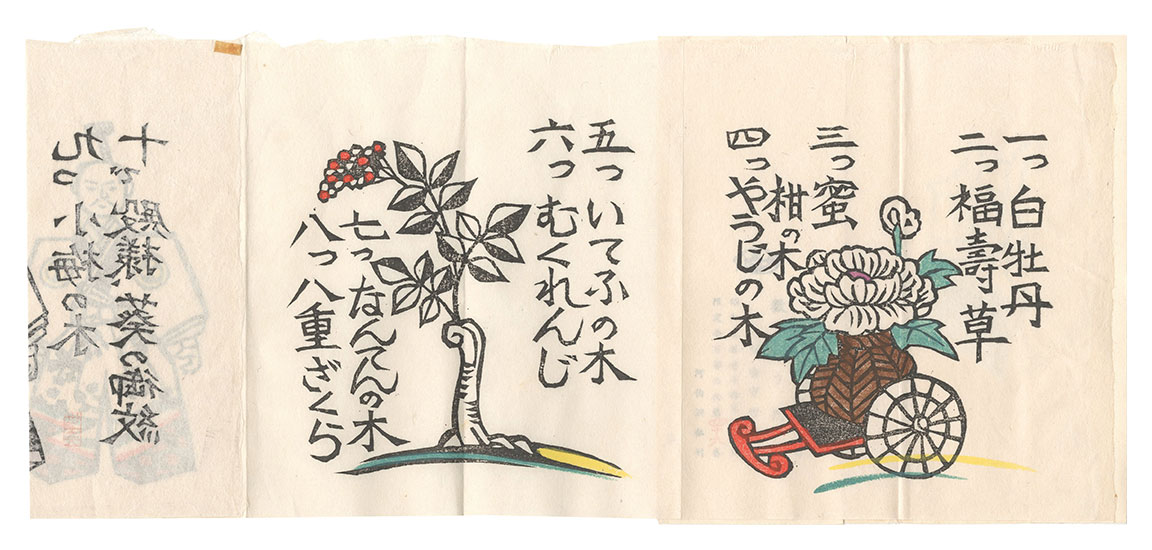 一つ白牡丹
二つ福壽草
三つ蜜
柑の木
四つやうじの木
五ついてふの木
六つむくれんじ
七つなんてんの木
八つ八重ざくら
九つ小梅の木
十で殿様葵の御紋